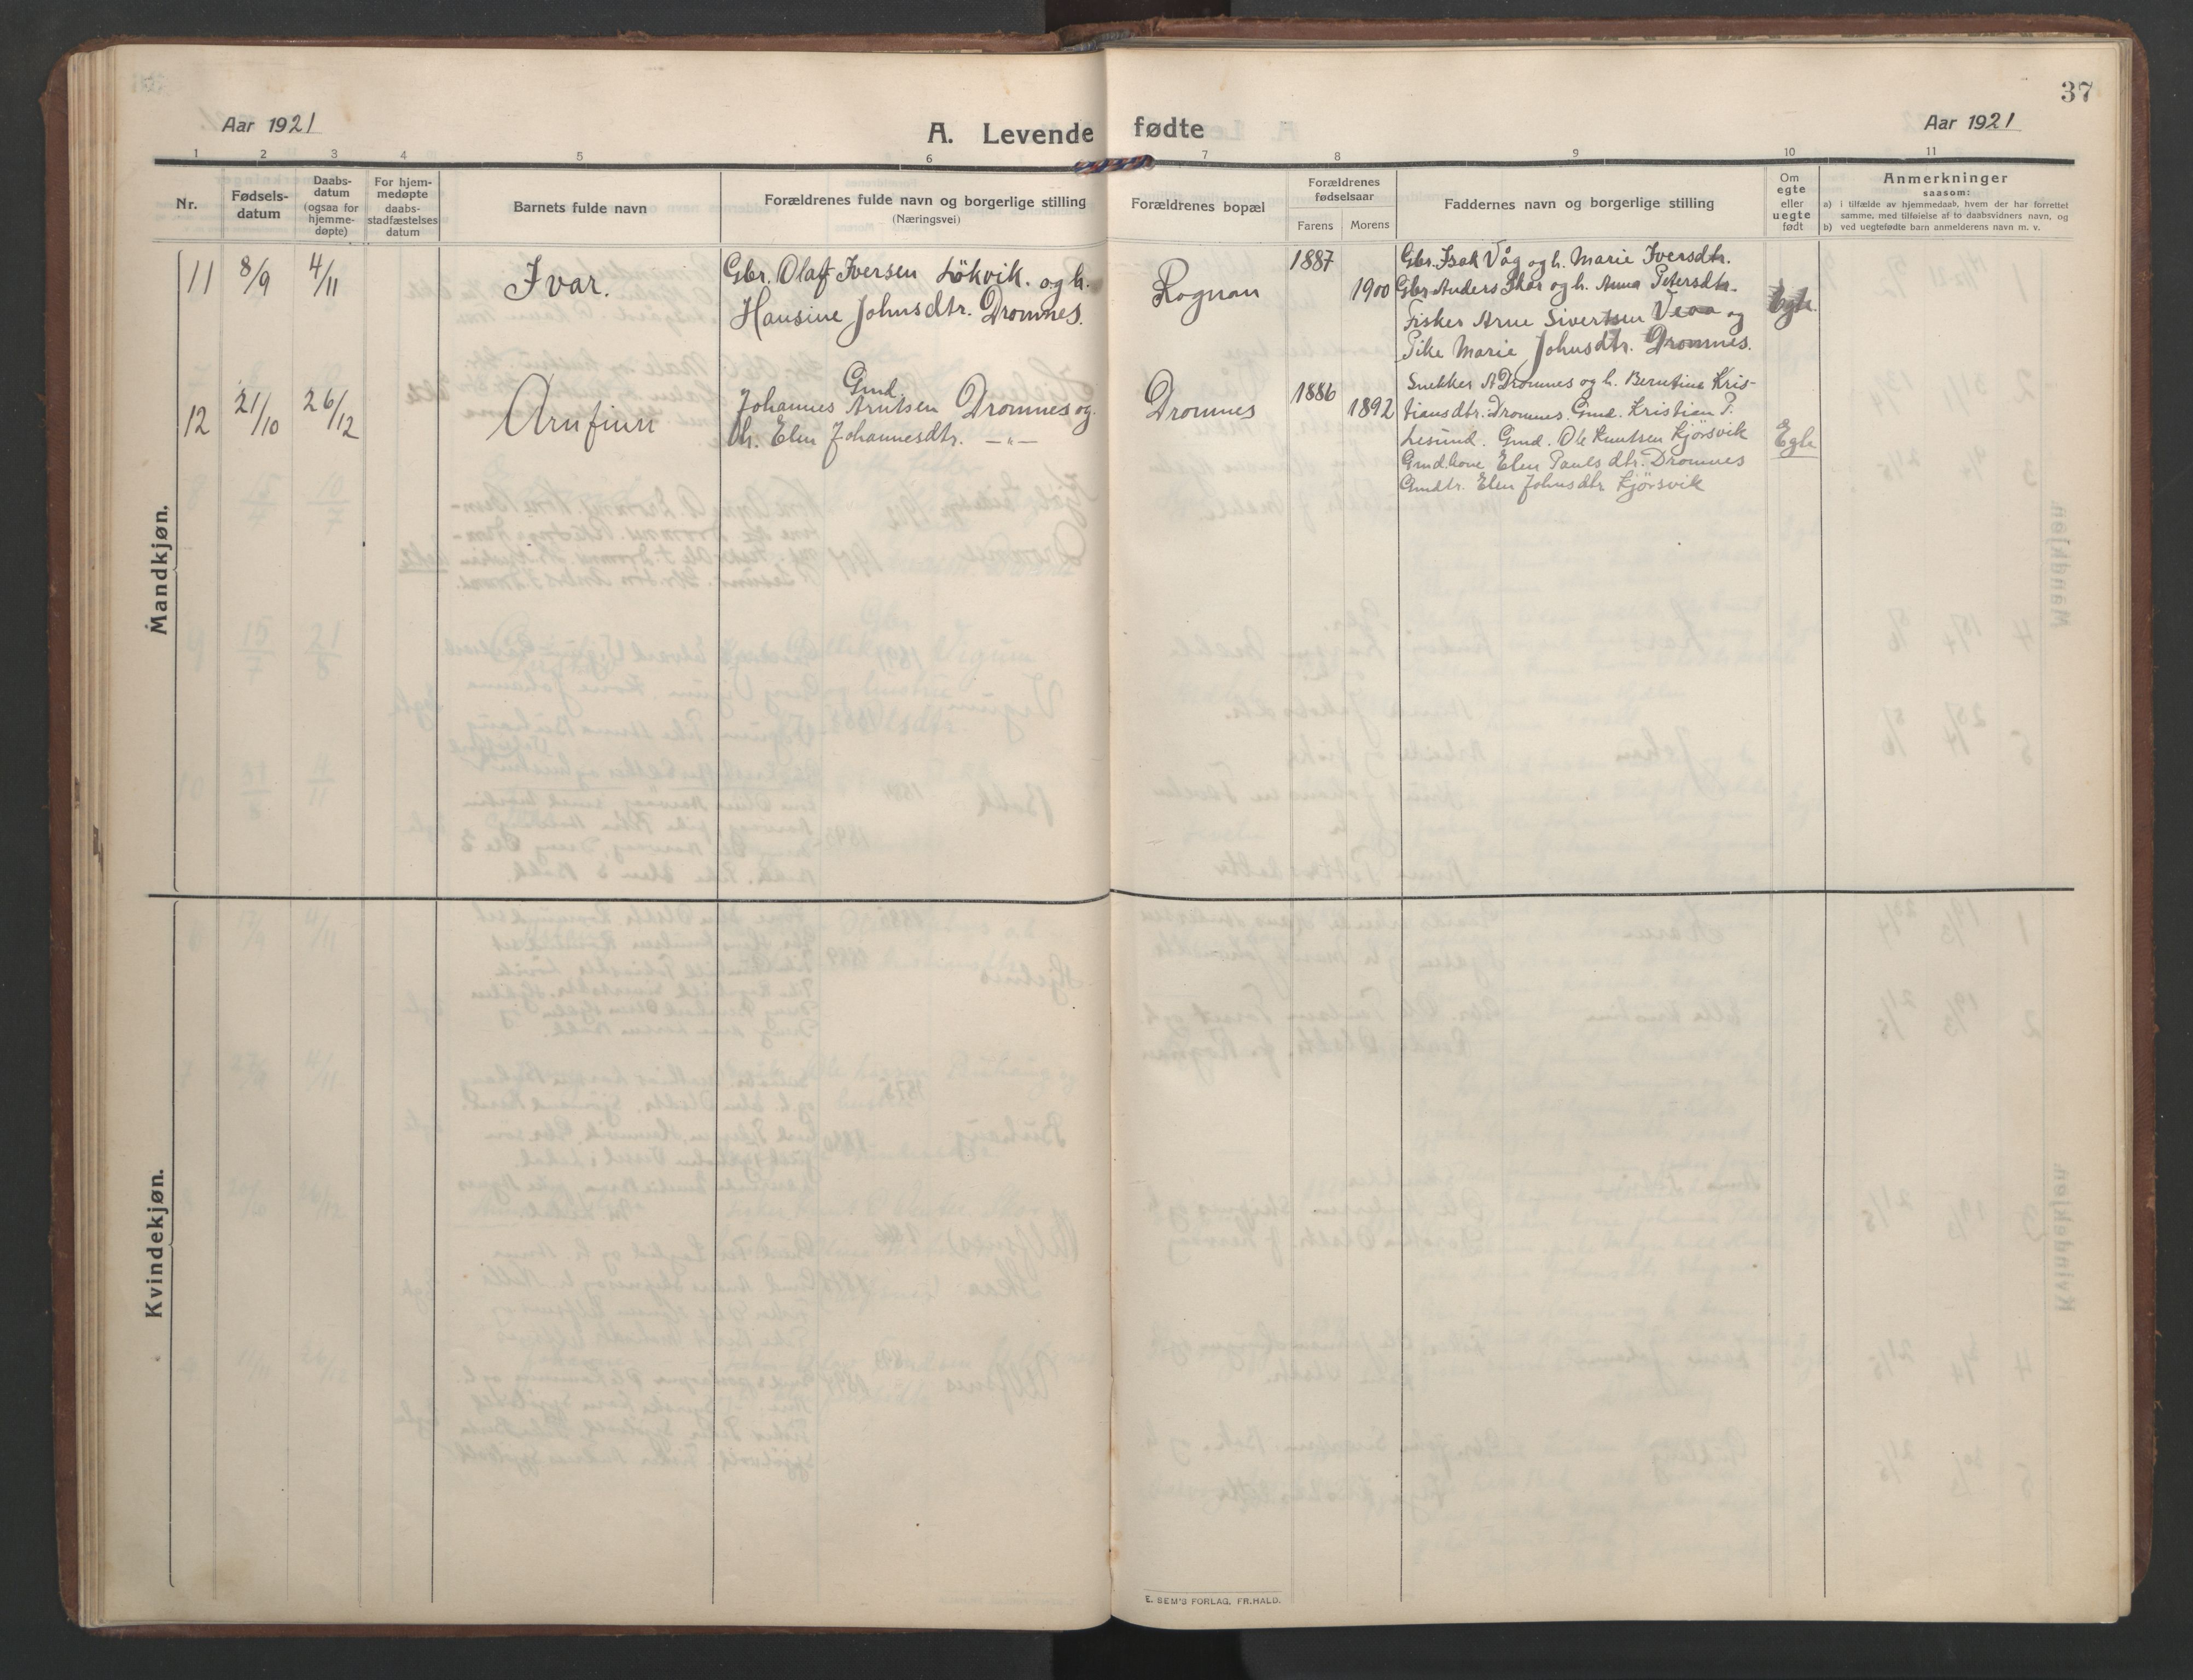 37
Aar 1921
A. Levende fødte
Aar 1921
1 2 3 4 5 6 7 8 9 10 11
Nr.
Fødsels-
datum
Daabs-
datum
(ogsaa for
hjemme-
døpte)
For hjem-
medøpte
daabs-
stadfæstelses
datum
Barnets fulde navn
Forældrenes fulde navn og borgerlige stilling
(Næringsvei)
Forældrenes bopæl
Forældrenes
fødselsaar
Farens Morens
Faddernes navn og borgerlige stilling
Om
egte
eller
uegte
født
Anmerkninger
saasom:
a) i tilfælde av hjemmedaab, hvem der har forrettet
samme, med tilføielse af to daabsvidners navn, og
b) ved uegtefødte barn anmelderens navn m. v.
Mandkjøn.
11 8/9 4/11 Ivar.
Gbr. Olaf Iversen Lökvik. og h.
Hansine Johnsdtr. Dromnes.
Rognan
1887
1900
Gbr. Isak Våg og h. Marie Iversdtr.
Gbr Anders Skar og h. Anna Petersdtr.
Fisker Arne Sivertsen Veaa og
Pike Marie Johnsdtr. Dromnes.
Egte.
12 21/10 26/12 Arnfinn
Gmd
Johannes Arntsen Dromnes og
h. Elen Johannesdtr. —„—
Dromnes
1886
1892
Snekker A Dromnes og h. Berntine Kris-
tiansdtr. Dromnes. Gmd. Kristian P.
Lesund. Gmd. Ole Knutsen Kjørsvik
Gmdkone Elen Paulsdtr. Dromnes
Gmdtr. Elen Johnsdtr Kjørsvik
Egte
Kvindekjøn.
E. SEM'S FORLAG, FR.HALD.